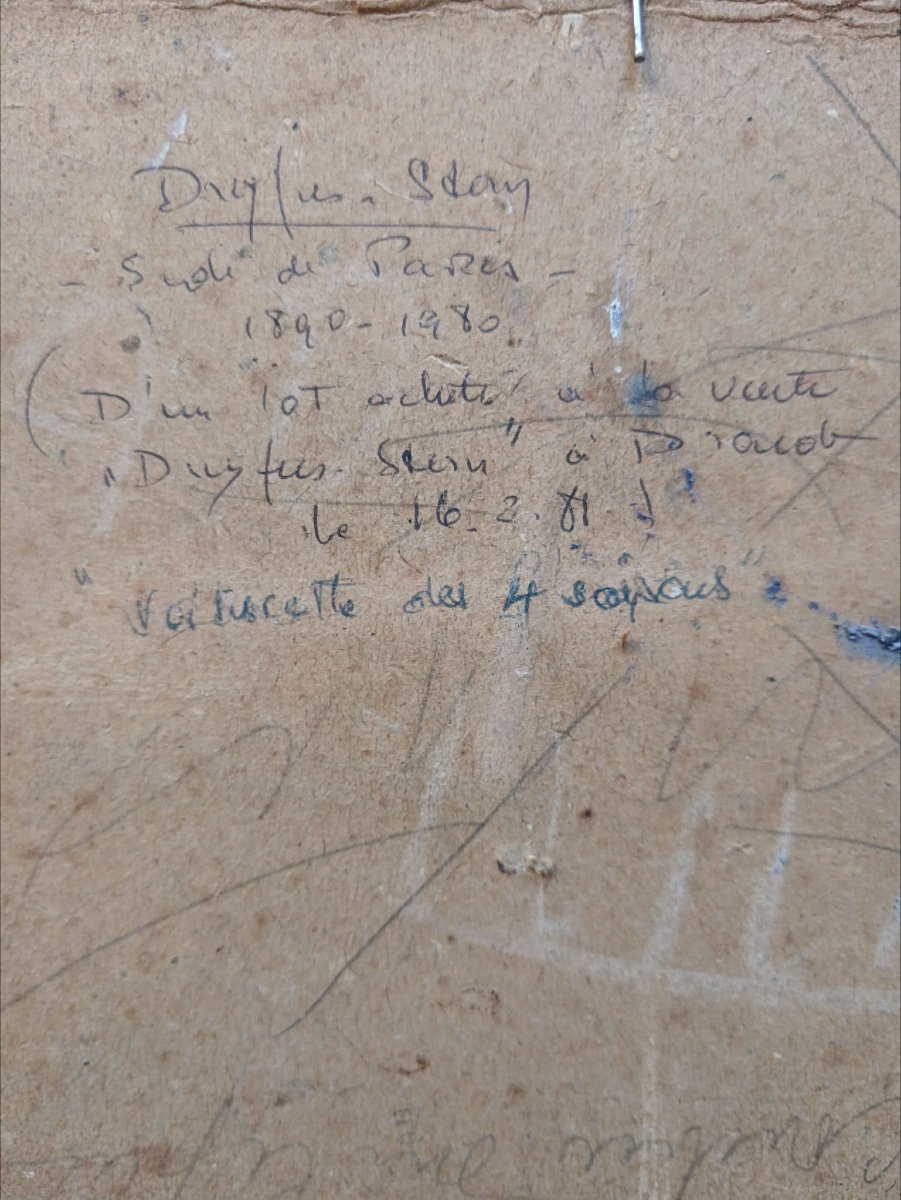 Dreyfus. Stern
- École de Paris -
1890-1980
(D'un lot acheté à la vente
"Dreyfus. Stern" à Drouot
le 16.2.81
"Voiturette des 4 saisons"